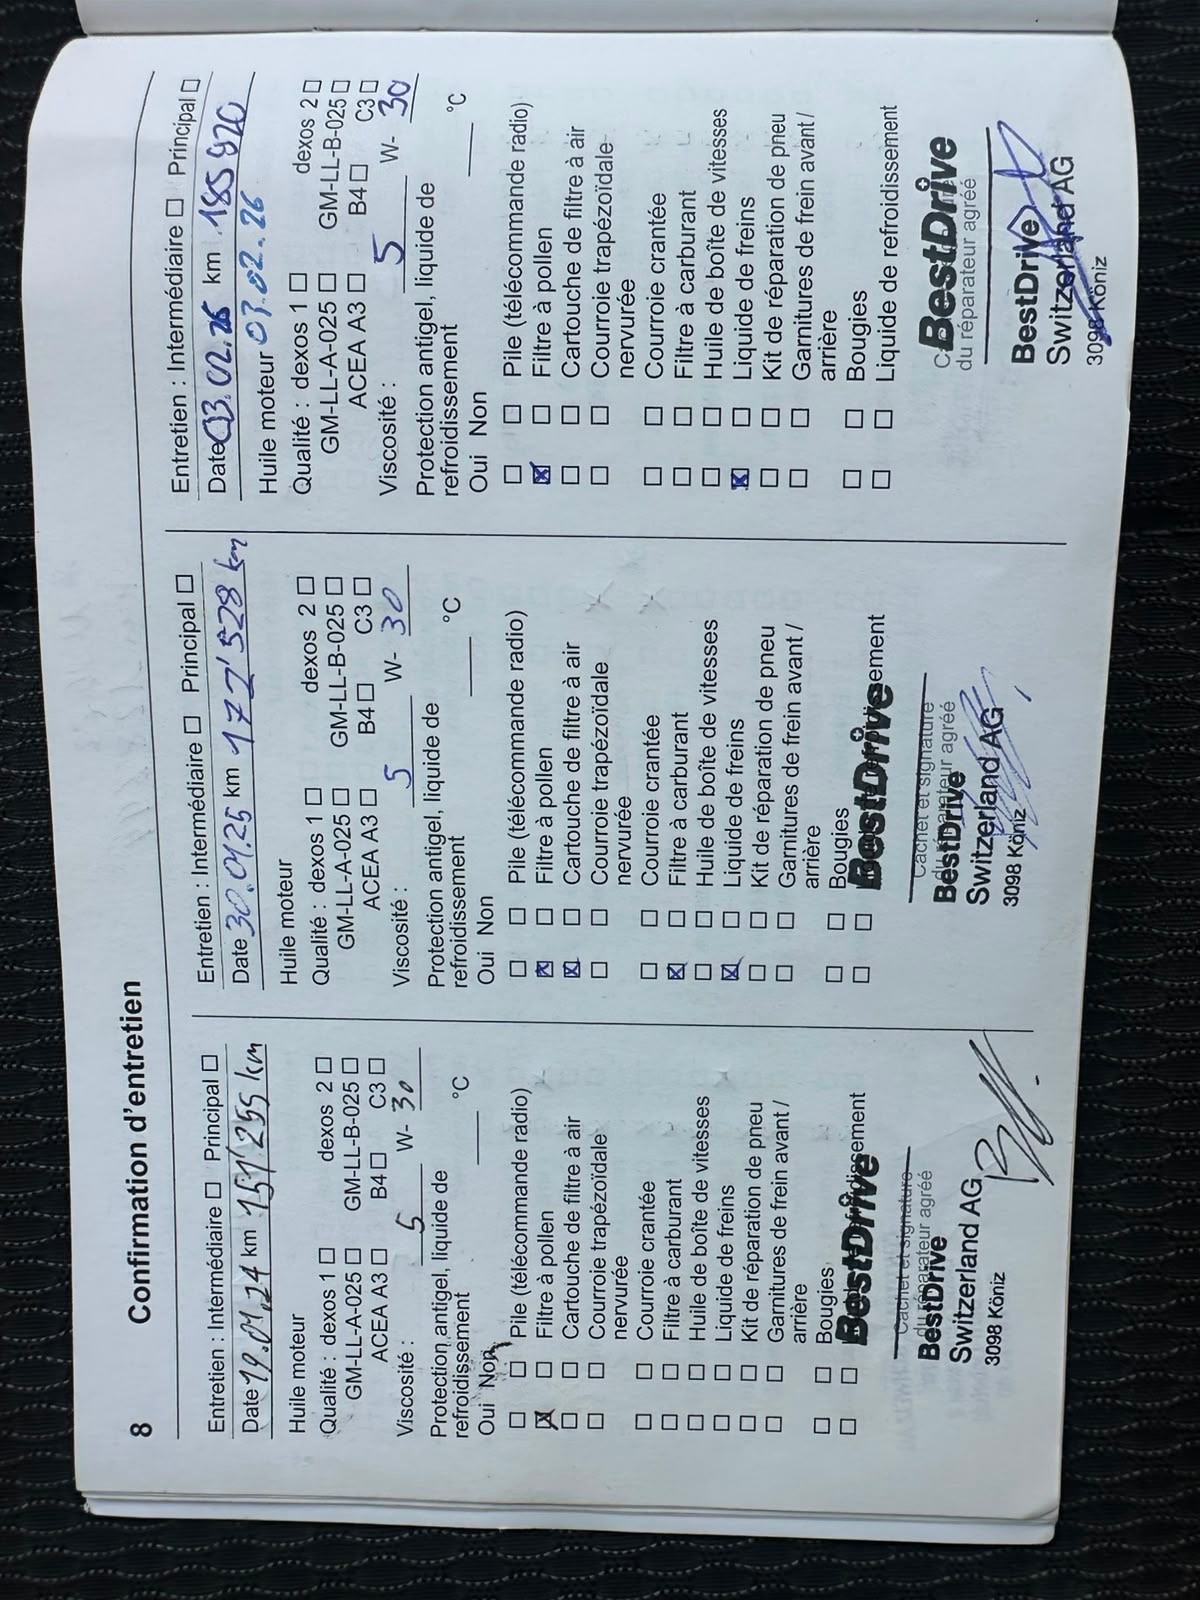 8 Confirmation d'entretien
Entretien : Intermédiaire □ Principal □
Date 19.01.24 km 151'255 km
Huile moteur
Qualité : dexos 1 □ dexos 2 □
GM-LL-A-025 □ GM-LL-B-025 □
ACEA A3 □ B4 □ C3 □
Viscosité : 5 W- 30
Protection antigel, liquide de
refroidissement °C
Oui Non
□ □ Pile (télécommande radio)
☒ □ Filtre à pollen
□ □ Cartouche de filtre à air
□ □ Courroie trapézoïdale
nervurée
□ □ Courroie crantée
□ □ Filtre à carburant
□ □ Huile de boîte de vitesses
□ □ Liquide de freins
□ □ Kit de réparation de pneu
□ □ Garnitures de frein avant /
arrière
□ □ Bougies
□ □ BestDrive
Cachet et signature
du réparateur agréé
BestDrive
Switzerland AG
3098 Köniz
Entretien : Intermédiaire □ Principal □
Date 30.01.25 km 177'528 km
Huile moteur
Qualité : dexos 1 □ dexos 2 □
GM-LL-A-025 □ GM-LL-B-025 □
ACEA A3 □ B4 □ C3 □
Viscosité : 5 W- 30
Protection antigel, liquide de
refroidissement °C
Oui Non
□ □ Pile (télécommande radio)
☒ □ Filtre à pollen
☒ □ Cartouche de filtre à air
□ □ Courroie trapézoïdale
nervurée
□ □ Courroie crantée
☒ □ Filtre à carburant
□ □ Huile de boîte de vitesses
☒ □ Liquide de freins
□ □ Kit de réparation de pneu
□ □ Garnitures de frein avant /
arrière
□ □ Bougies
□ □ BestDrive
Cachet et signature
du réparateur agréé
BestDrive
Switzerland AG
3098 Köniz
Entretien : Intermédiaire □ Principal □
Date 03.02.26 km 185 920
Huile moteur 03.02.26
Qualité : dexos 1 □ dexos 2 □
GM-LL-A-025 □ GM-LL-B-025 □
ACEA A3 □ B4 □ C3 □
Viscosité : 5 W- 30
Protection antigel, liquide de
refroidissement °C
Oui Non
□ □ Pile (télécommande radio)
☒ □ Filtre à pollen
□ □ Cartouche de filtre à air
□ □ Courroie trapézoïdale
nervurée
□ □ Courroie crantée
□ □ Filtre à carburant
□ □ Huile de boîte de vitesses
☒ □ Liquide de freins
□ □ Kit de réparation de pneu
□ □ Garnitures de frein avant /
arrière
□ □ Bougies
□ □ Liquide de refroidissement
BestDrive
du réparateur agréé
BestDrive
Switzerland AG
3098 Köniz